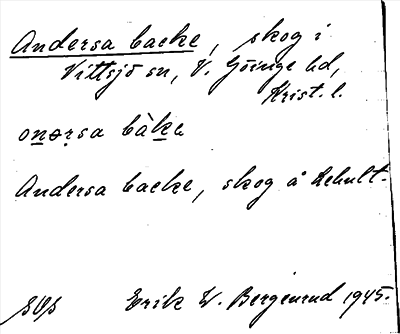 Andersa backe, skog i
Vittsjö sn, V. Göinge hd,
Krist. l.
onərsa bàke
Andersa backe, skog å Rehult.
Erik W. Bergenrud 1945.